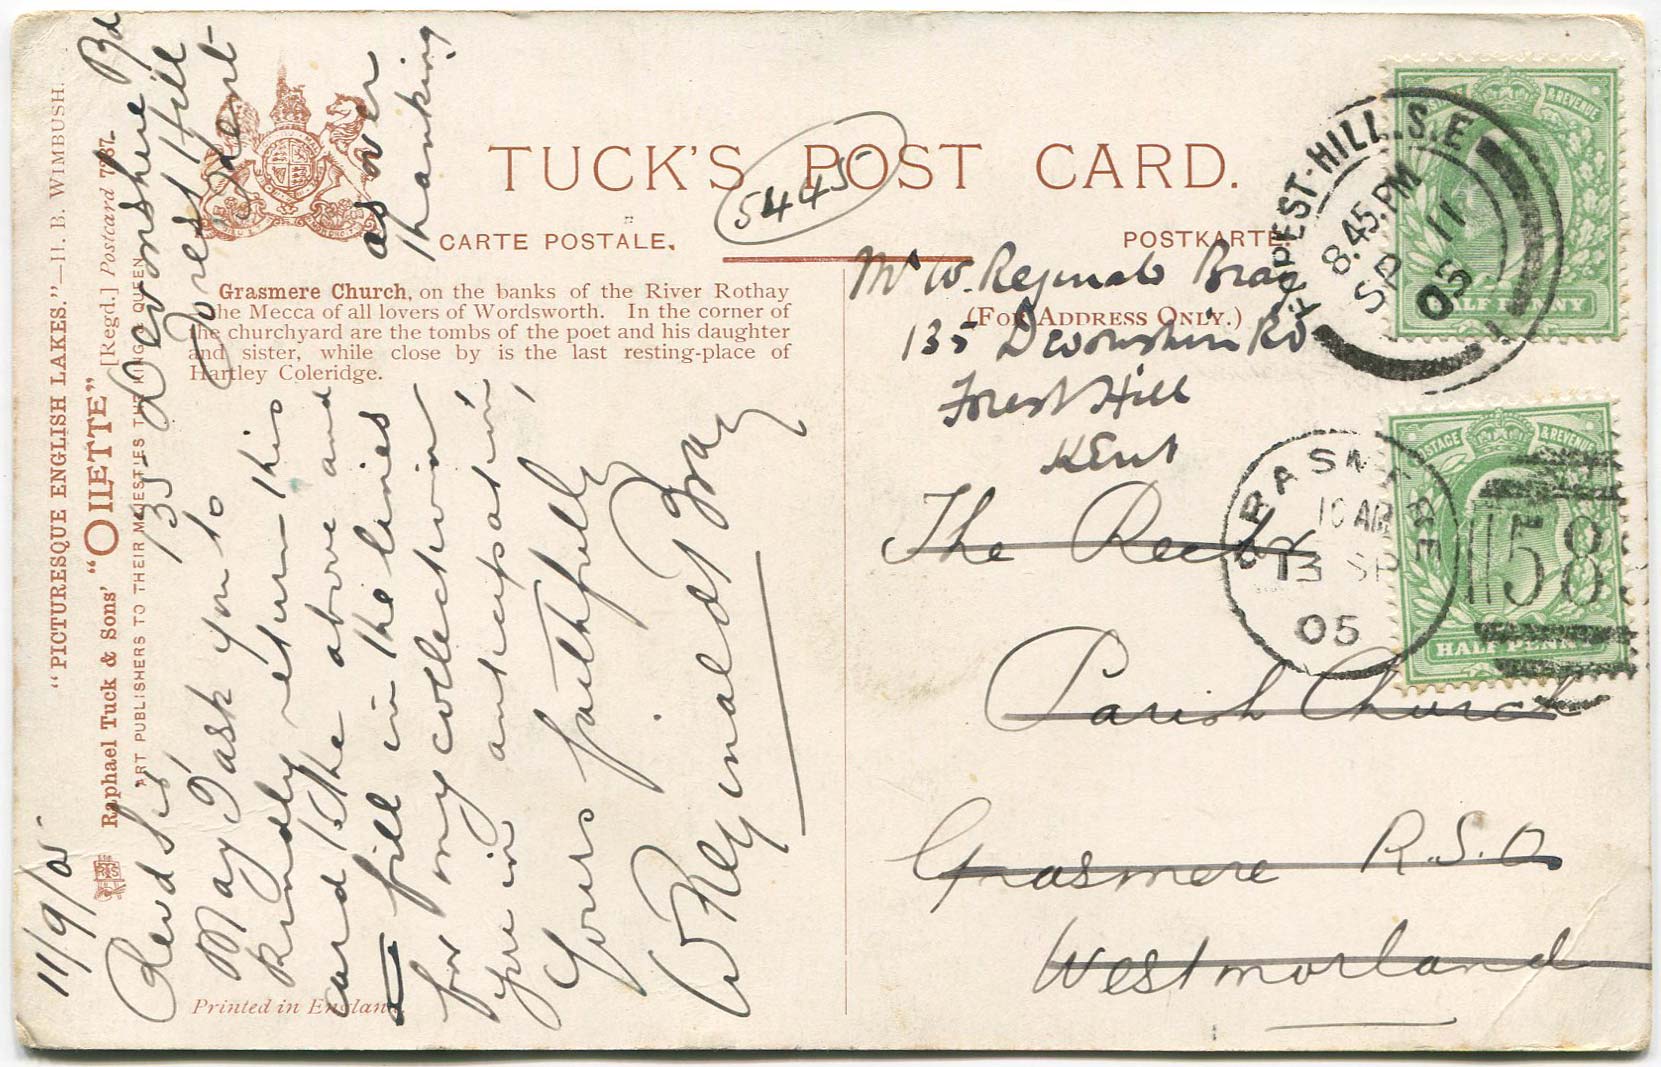 TUCK'S POST CARD.
CARTE POSTALE.
POSTKARTE
(FOR ADDRESS ONLY.)
5445
Grasmere Church, on the banks of the River Rothay
the Mecca of all lovers of Wordsworth. In the corner of
the churchyard are the tombs of the poet and his daughter
and sister, while close by is the last resting-place of
Hartley Coleridge.
"PICTURESQUE ENGLISH LAKES."—H. B. WIMBUSH.
Raphael Tuck & Sons' "OILETTE" [Regd.] Postcard
ART PUBLISHERS TO THEIR MAJESTIES THE KING & QUEEN
Printed in England
11/9/05
135 Devonshire Rd
Forest Hill
Kent
Revd Sir,
May I ask you to
kindly return this
card to the above and
fill in the lines
for my collection
as over
thanking
you in anticipation,
Yours faithfully
W. Reginald Bray
Mr W. Reginald Bray
135 Devonshire Rd
Forest Hill
Kent
The Rector
Parish Church
Grasmere R.S.O
Westmorland
FOREST-HILL.S.E
8.45.PM
SP 11
05
POSTAGE & REVENUE
HALF PENNY
GRASMERE
10 AM
13 SP
05
158
POSTAGE & REVENUE
HALF PENNY